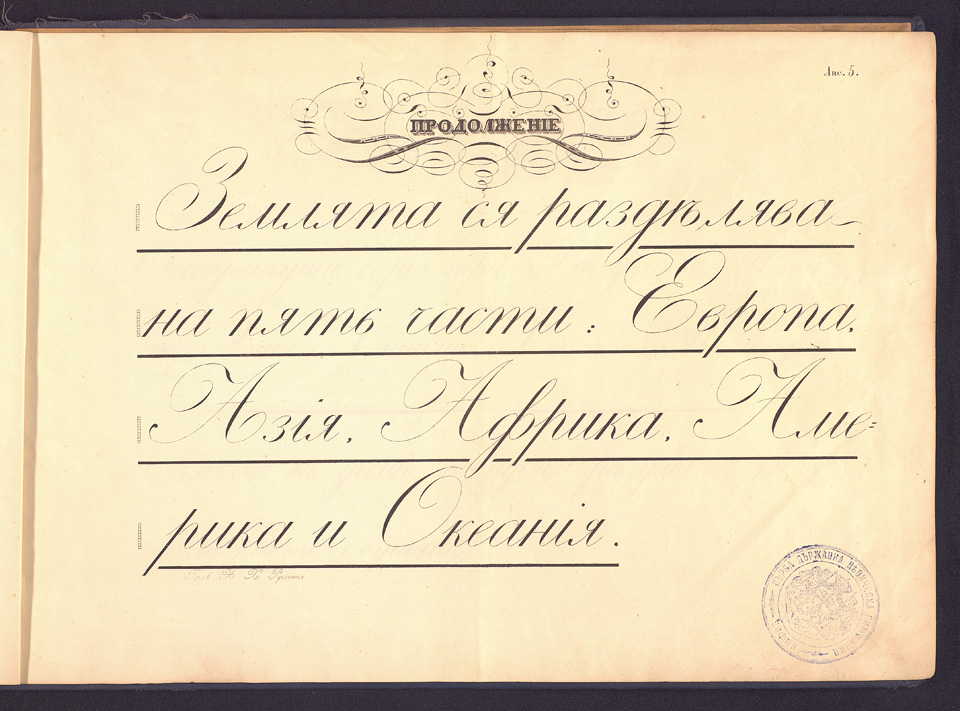 Лис. 5.
ПРОДОЛЖЕНІЕ
Землята ся раздѣлява
на пять части: Европа,
Азія, Африка, Аме=
рика и Океанія.